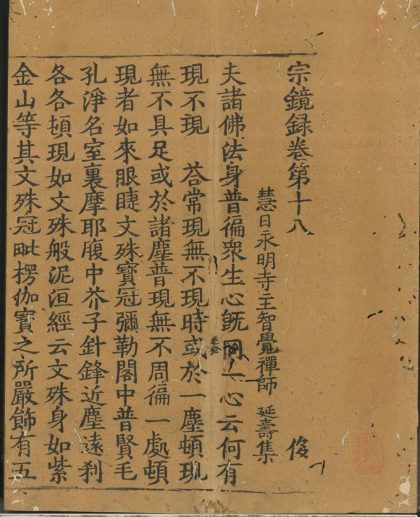 宗鏡錄卷第十八 俊
慧日永明寺主智覺禪師 延壽集
夫諸佛法身普徧衆生心旣同一心云何有
現不現 荅常現無不現時或於一塵頓現
無不具足或於諸塵普現無不周徧一處頓
現者如來眼睫文殊寶冠彌勒閣中普賢毛
孔淨名室裏摩耶腹中芥子針鋒近塵遠刹
各各頓現如文殊般泥洹經云文殊身如紫
金山等其文殊冠毗楞伽寶之所嚴飾有五